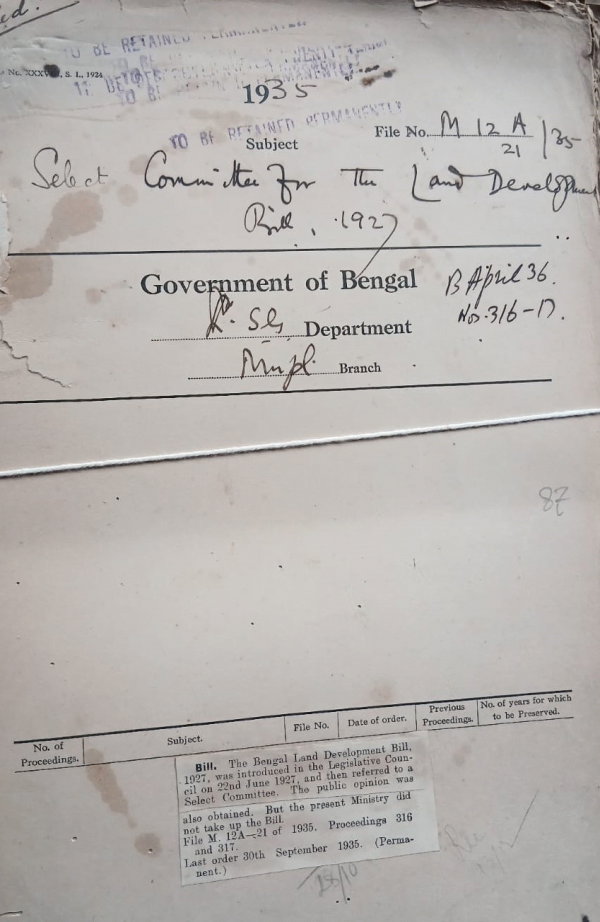 TO BE RETAINED PERMANENTLY
S. L., 1924
1935
TO BE RETAINED PERMANENTLY
File No. M 12 A / 21 / 35
Subject
Select Committee for the Land Development
Bill, 1927
Government of Bengal
B April 36.
Nos. 316-17.
L. S. G. Department
Munpl. Branch
87
No. of Proceedings.
Subject.
File No.
Date of order.
Previous Proceedings.
No. of years for which to be Preserved.
Bill. The Bengal Land Development Bill,
1927, was introduced in the Legislative Coun-
cil on 22nd June 1927, and then referred to a
Select Committee. The public opinion was
also obtained. But the present Ministry did
not take up the Bill.
File M. 12A—21 of 1935. Proceedings 316
and 317.
Last order 30th September 1935. (Perma-
nent.)